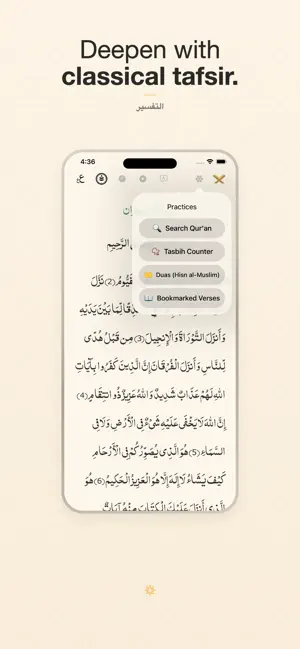 Deepen with
classical tafsir.
التفسير
4:36
Practices
🔍 Search Qur'an
📿 Tasbih Counter
Duas (Hisn al-Muslim)
📖 Bookmarked Verses
ان
الرَّحِيمِ
الْقَيُّومُ (2) نَزَّلَ
قًا لِمَا بَيْنَ يَدَيْهِ
وَأَنزَلَ التَّوْرَاةَ وَالْإِنجِيلَ (3) مِن قَبْلُ هُدًى
لِّلنَّاسِ وَأَنزَلَ الْفُرْقَانَ إِنَّ الَّذِينَ كَفَرُوا بِآيَاتِ
اللَّهِ لَهُمْ عَذَابٌ شَدِيدٌ وَاللَّهُ عَزِيزٌ ذُو انتِقَامٍ (4)
إِنَّ اللَّهَ لَا يَخْفَىٰ عَلَيْهِ شَيْءٌ فِي الْأَرْضِ وَلَا فِي
السَّمَاءِ (5) هُوَ الَّذِي يُصَوِّرُكُمْ فِي الْأَرْحَامِ
كَيْفَ يَشَاءُ لَا إِلَٰهَ إِلَّا هُوَ الْعَزِيزُ الْحَكِيمُ (6) هُوَ
الَّذِي أَنزَلَ عَلَيْكَ الْكِتَابَ مِنْهُ آيَاتٌ